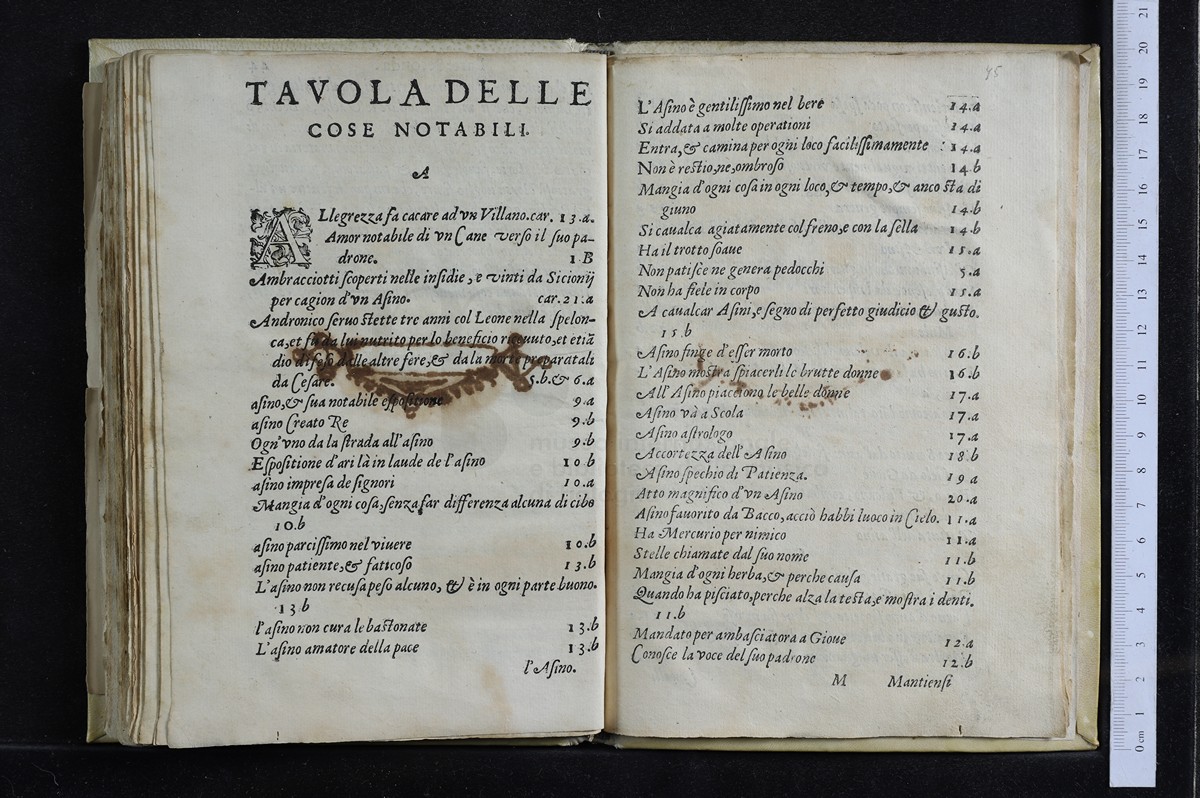 TAVOLA DELLE
COSE NOTABILI.
A
ALlegrezza fa cacare ad vn Villano. car. 13.a.
Amor notabile di vn Cane verso il suo pa-
drone. 1 B
Ambracciotti scoperti nelle insidie, e vinti da Sicionij
per cagion d'vn Asino. car. 21.a
Andronico seruo stette tre anni col Leone nella spelon-
ca, et fu da lui nutrito per lo beneficio riceuuto, et etiã
dio difeso dalle altre fere, & da la morte preparatali
da Cesare. 5.b. & 6.a
asino, & sua notabile espositione 9.a
asino Creato Re 9.b
Ogn'vno da la strada all'asino 9.b
Espositione d'ari là in laude de l'asino 10.b
asino impresa de signori 10.a
Mangia d'ogni cosa, senza far differenza alcuna di cibo
10.b
asino parcissimo nel viuere 10.b
asino patiente, & faticoso 13.b
L'asino non recusa peso alcuno, & è in ogni parte buono.
13.b
l'asino non cura le bastonate 13.b
L'asino amatore della pace 13.b
l'Asino.
45
L'Asino è gentilissimo nel bere 14.a
Si addata a molte operationi 14.a
Entra, & camina per ogni loco facilissimamente 14.a
Non è restio, ne, ombroso 14.b
Mangia d'ogni cosa in ogni loco, & tempo, & anco sta di
giuno 14.b
Si caualca agiatamente col freno, e con la sella 14.b
Ha il trotto soaue 15.a
Non patisce ne genera pedocchi 5.a
Non ha fiele in corpo 15.a
A caualcar Asini, e segno di perfetto giudicio & gusto.
15.b
Asino finge d'esser morto 16.b
L'Asino mostra spiacerli le brutte donne 16.b
All'Asino piacciono le belle donne 17.a
Asino và a Scola 17.a
Asino astrologo 17.a
Accortezza dell'Asino 18.b
Asino spechio di Patienza. 19 a
Atto magnifico d'vn Asino 20.a
Asino fauorito da Bacco, acciò habbi luoco in Cielo. 11.a
Ha Mercurio per nimico 11.a
Stelle chiamate dal suo nome 11.b
Mangia d'ogni herba, & perche causa 11.b
Quando ha pisciato, perche alza la testa, e mostra i denti.
11.b
Mandato per ambasciatora a Gioue 12.a
Conosce la voce del suo padrone 12.b
M Mantiensi
0 cm 1 2 3 4 5 6 7 8 9 10 11 12 13 14 15 16 17 18 19 20 21